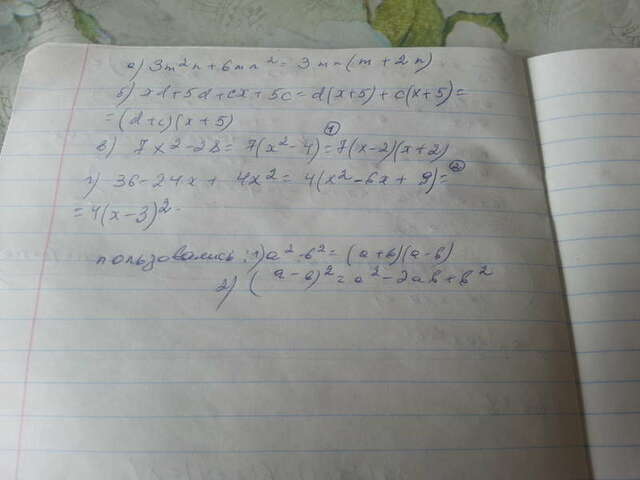 а) 3m²n + 6mn² = 3mn(m + 2n)
б) xd + 5d + cx + 5c = d(x+5) + c(x+5) =
= (d+c)(x+5)
в) 7x² - 28 = 7(x² - 4) =① 7(x-2)(x+2)
г) 36 - 24x + 4x² = 4(x² - 6x + 9) =②
= 4(x-3)².
пользовались: 1) a² - b² = (a+b)(a-b)
2) (a-b)² = a² - 2ab + b²